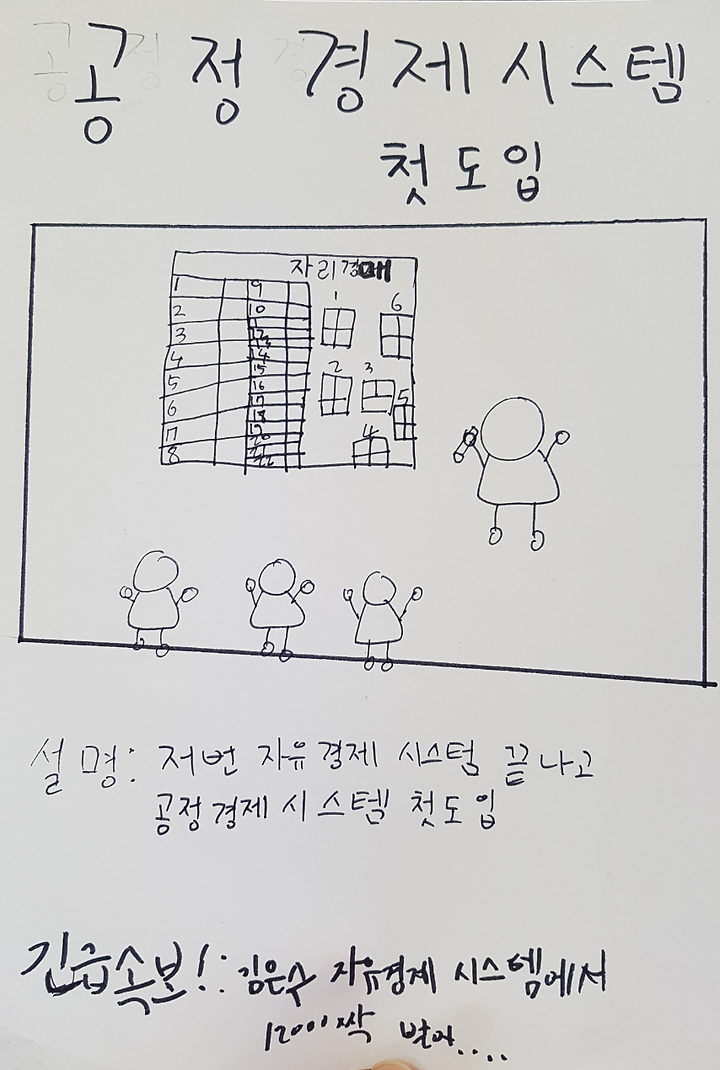 공정경제시스템
첫도입
자리경매
1 9
2 10
3 11
4 12
5 13
6 14
7 15
8 16
17
18
19
20
21
22
1 6
2 3
5
4
설명: 저번 자유경제 시스템 끝나고
공정경제시스템 첫도입
긴급속보!: 김은수 자유경제 시스템에서
12000짝 벌어....